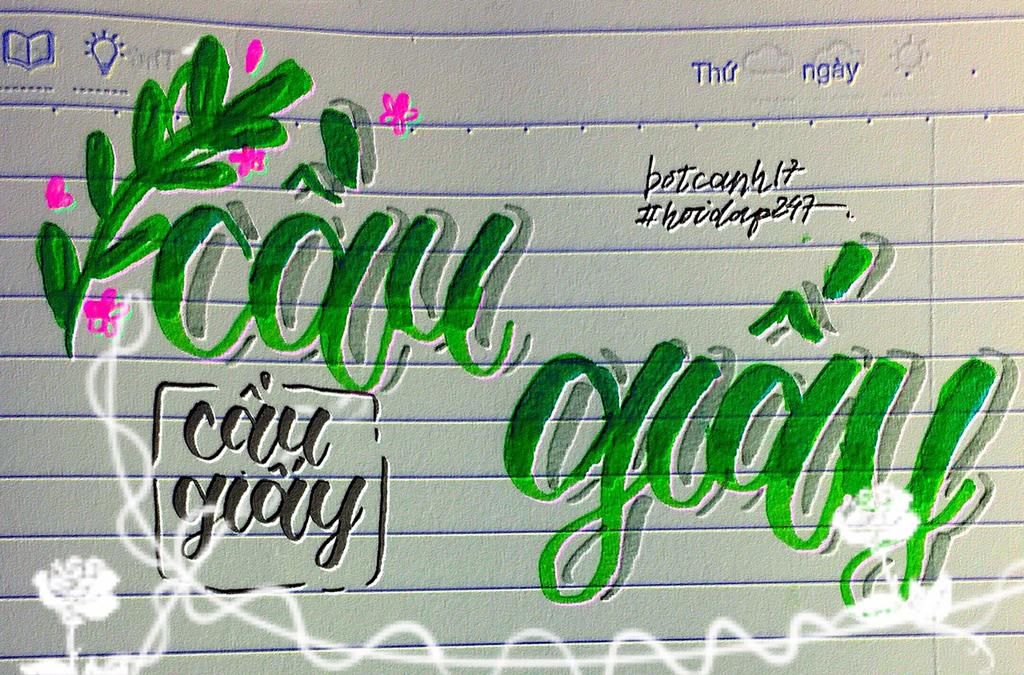 Thứ ngày
botcanh17
#hoidap247
cầu
giấy
cầu
giấy